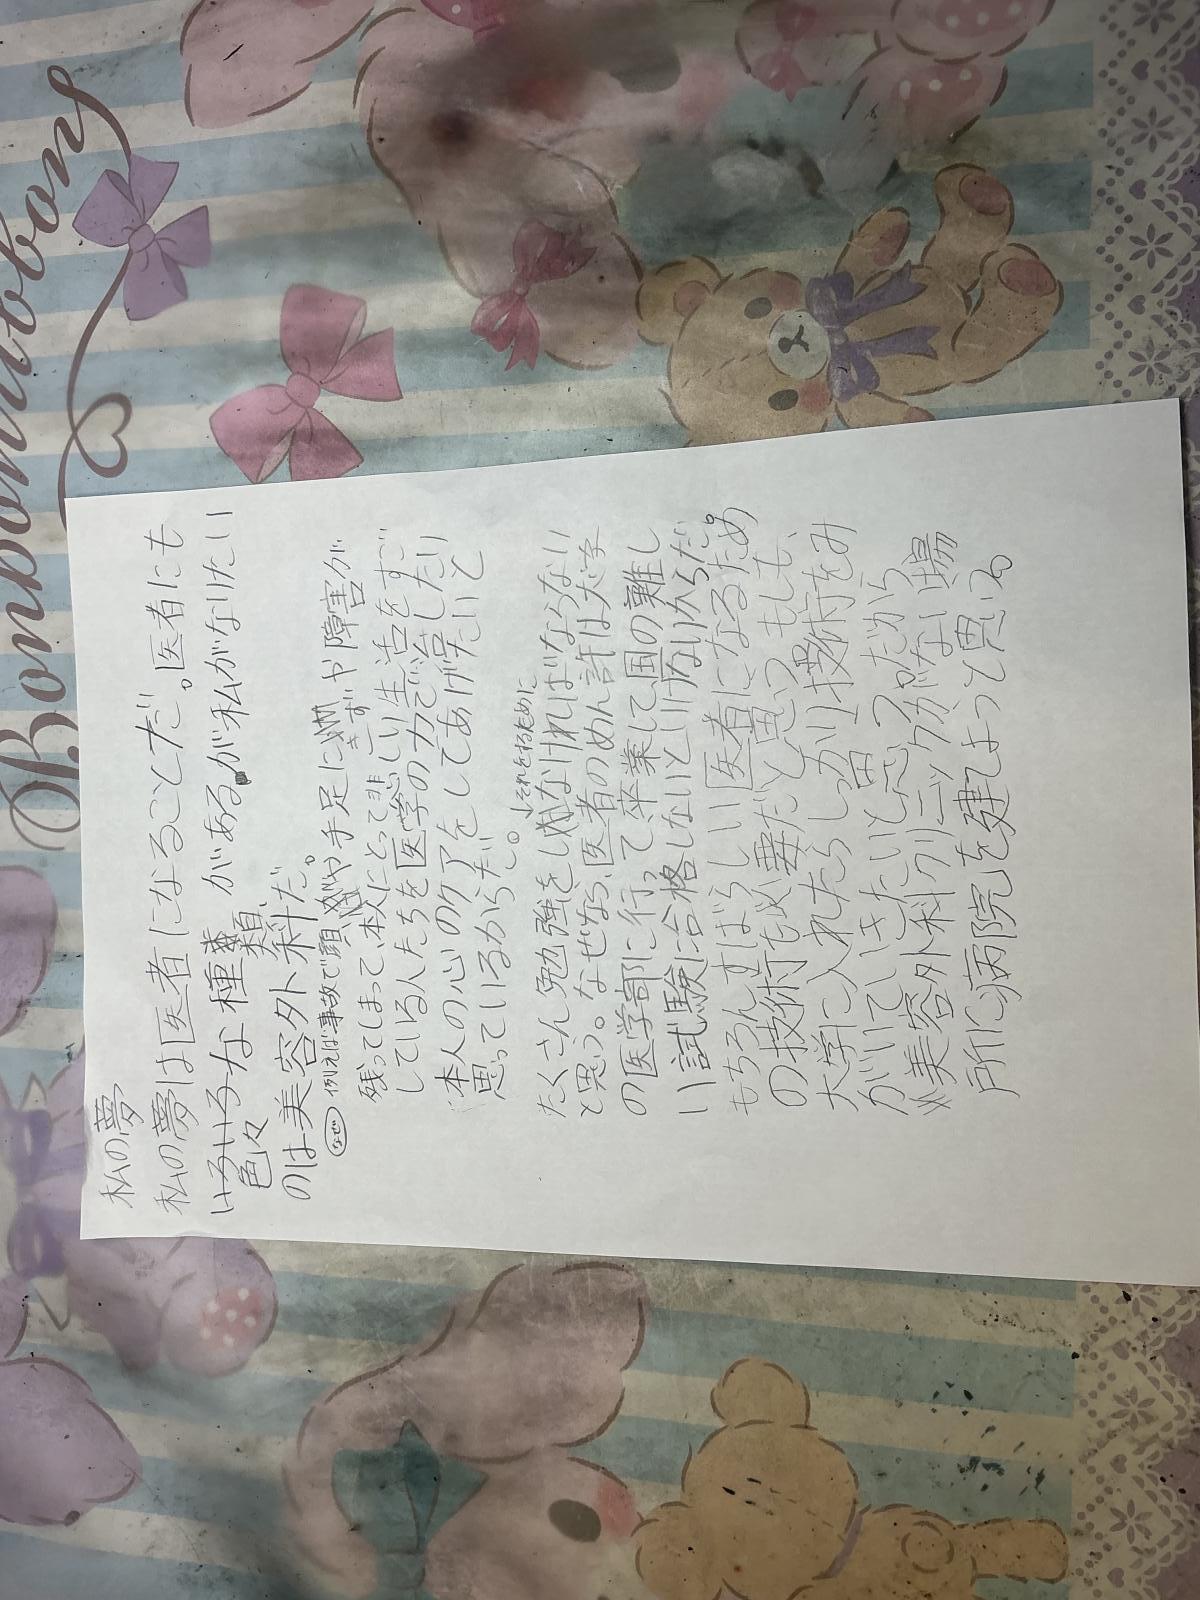 Bonbonribbon
私の夢
私の夢は医者になることだ。医者にも
いろいろな種類がある。が私がなりたい
色々
のは美容外科だ。
なぜ 例えば事故で顔や手足にきずや障害が
残ってしまって、本人にとって悲しい生活をすご
している人たちを医学の力で治したり
本人の心のケアをしてあげたいと
思っているからだ。
↓それをするために
たくさん勉強をしなければならない
と思う。なぜなら、医者のめん許は大学
の医学部に行って卒業して国の難し
い試験に合格しないといけないからだ。
もちろんすばらしい医者になるため
の技術も必要だと思う。もしも、
大学に入れたらしっかり技術をみ
がいていきたいと思う。だから
美容外科クリニックがない場
所に病院を建しようと思いる。